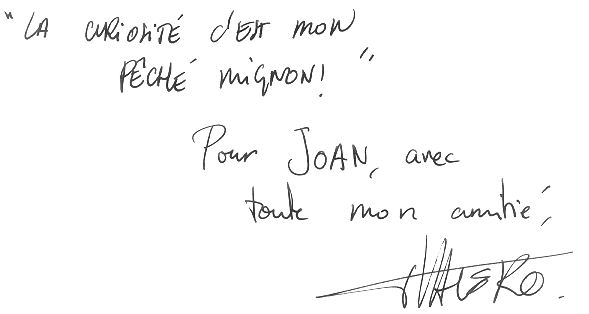 "LA CURIOSITÉ C'EST MON
PÊCHÉ MIGNON!"
Pour JOAN, avec
toute mon amitié,
VALERO.